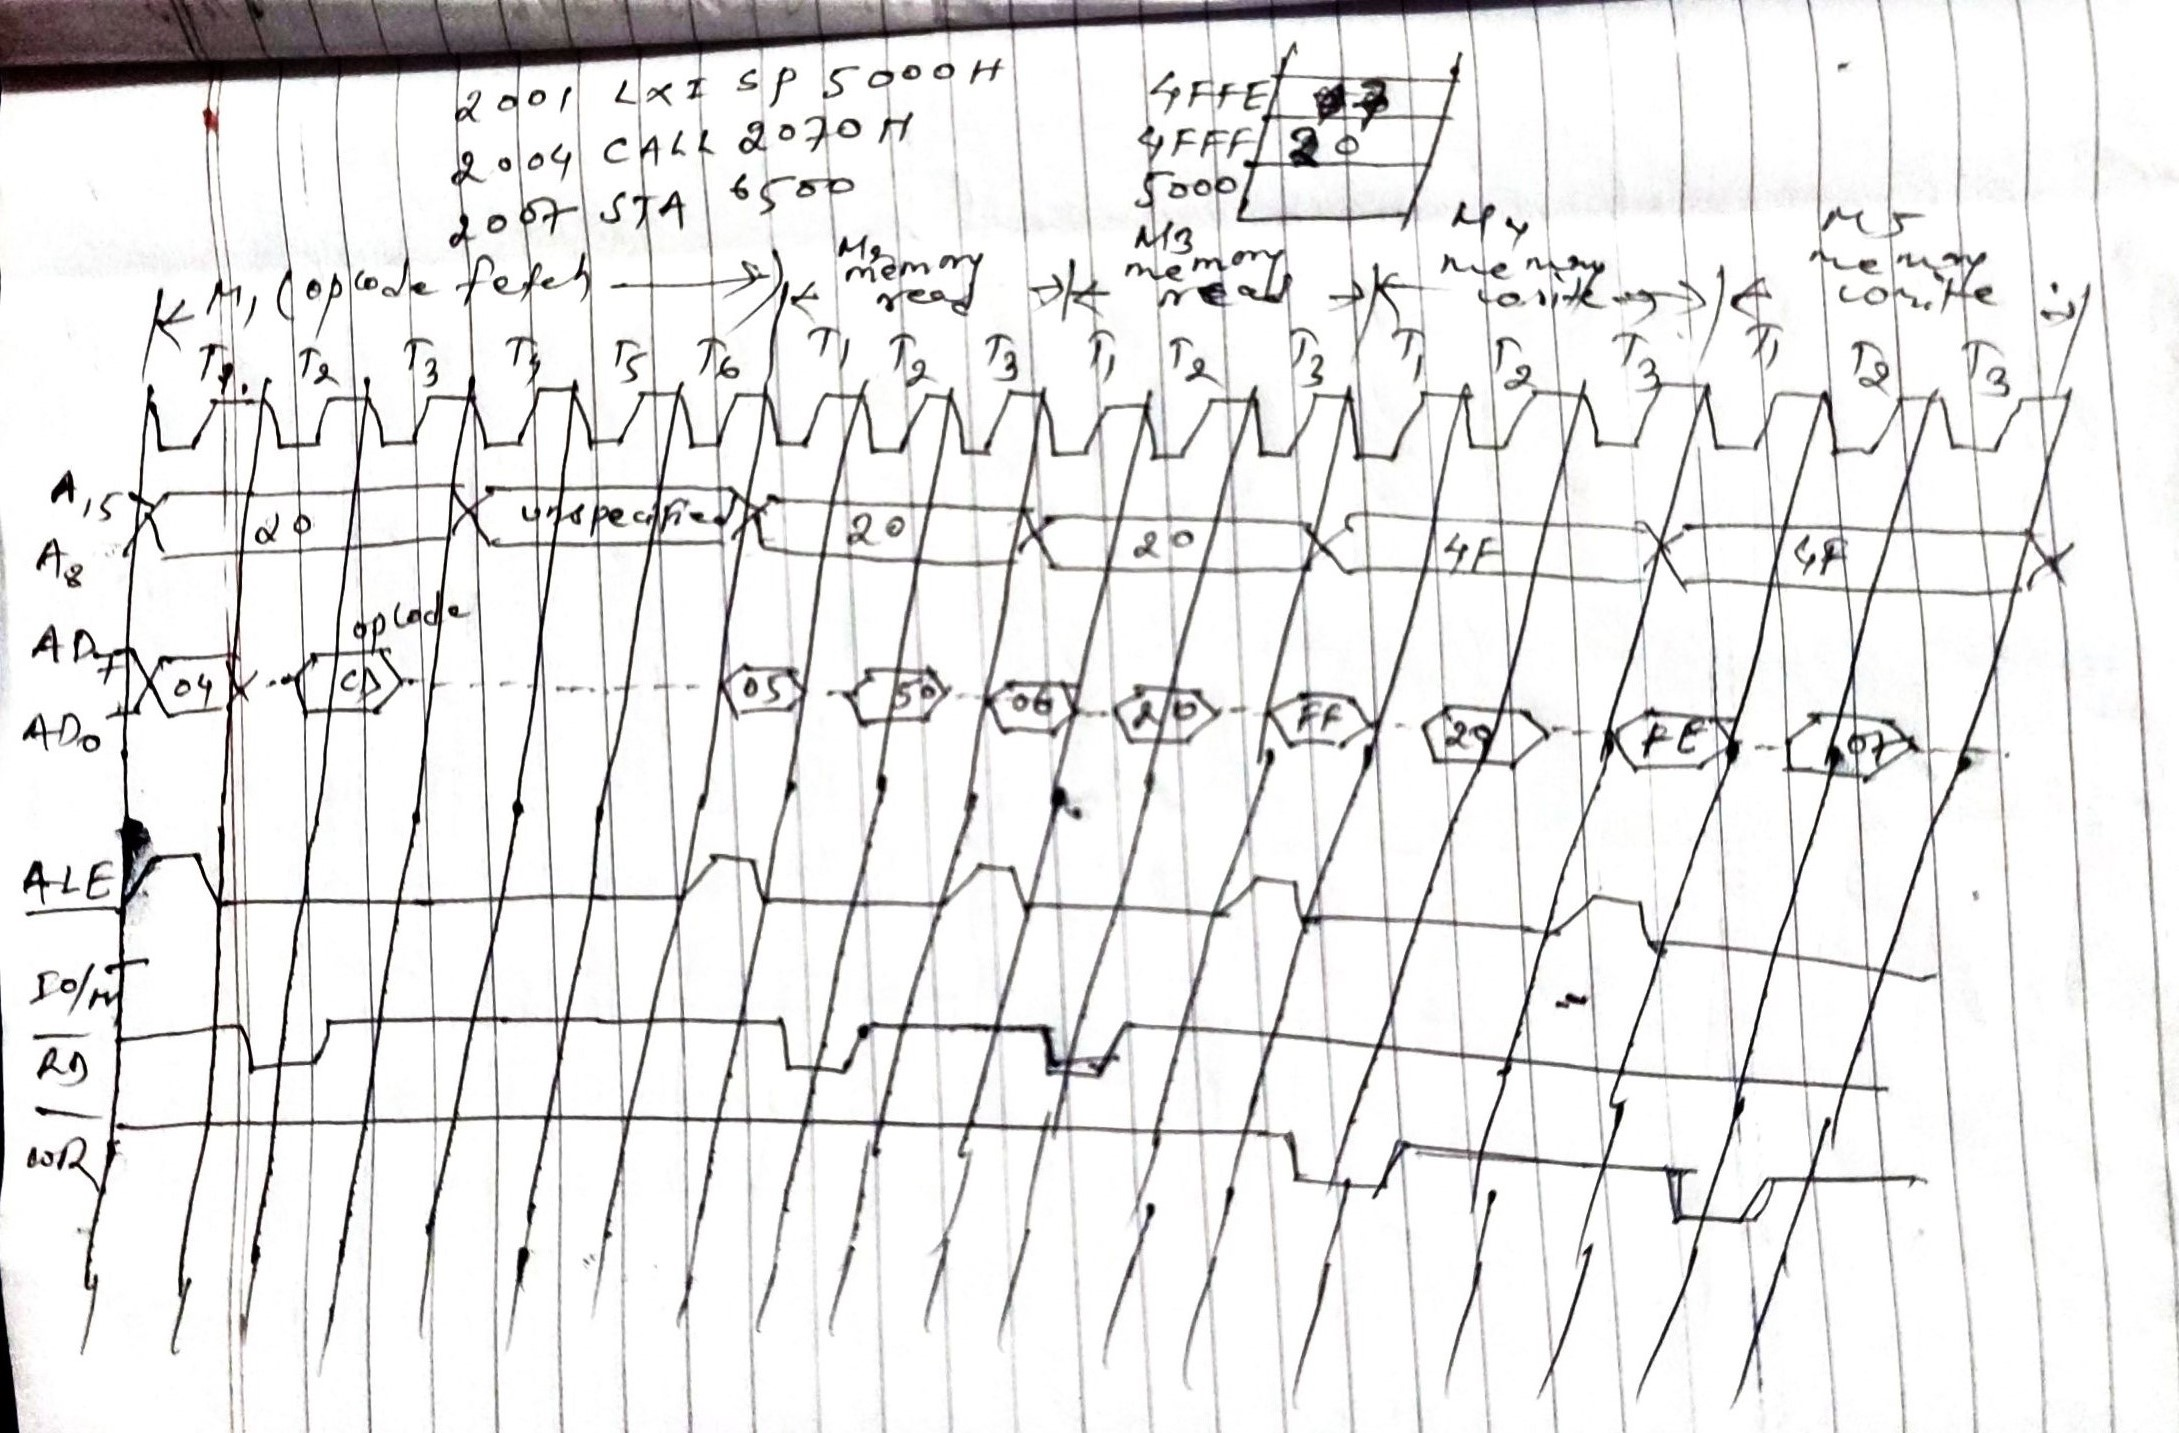 2001 LXI SP 5000H
2004 CALL 2070H
2007 STA 6500
4FFE
4FFF 20
5000
M1 (opcode fetch)
M2 memory read
M3 memory read
M4 memory write
M5 memory write
T1 T2 T3 T4 T5 T6 T1 T2 T3 T1 T2 T3 T1 T2 T3 T1 T2 T3
A15
A8
20 unspecified 20 20 4F 4F
opcode
AD7
AD0
04 CD 05 50 06 20 FF 20 FE 07
ALE
IO/M̅
R̅D̅
W̅R̅